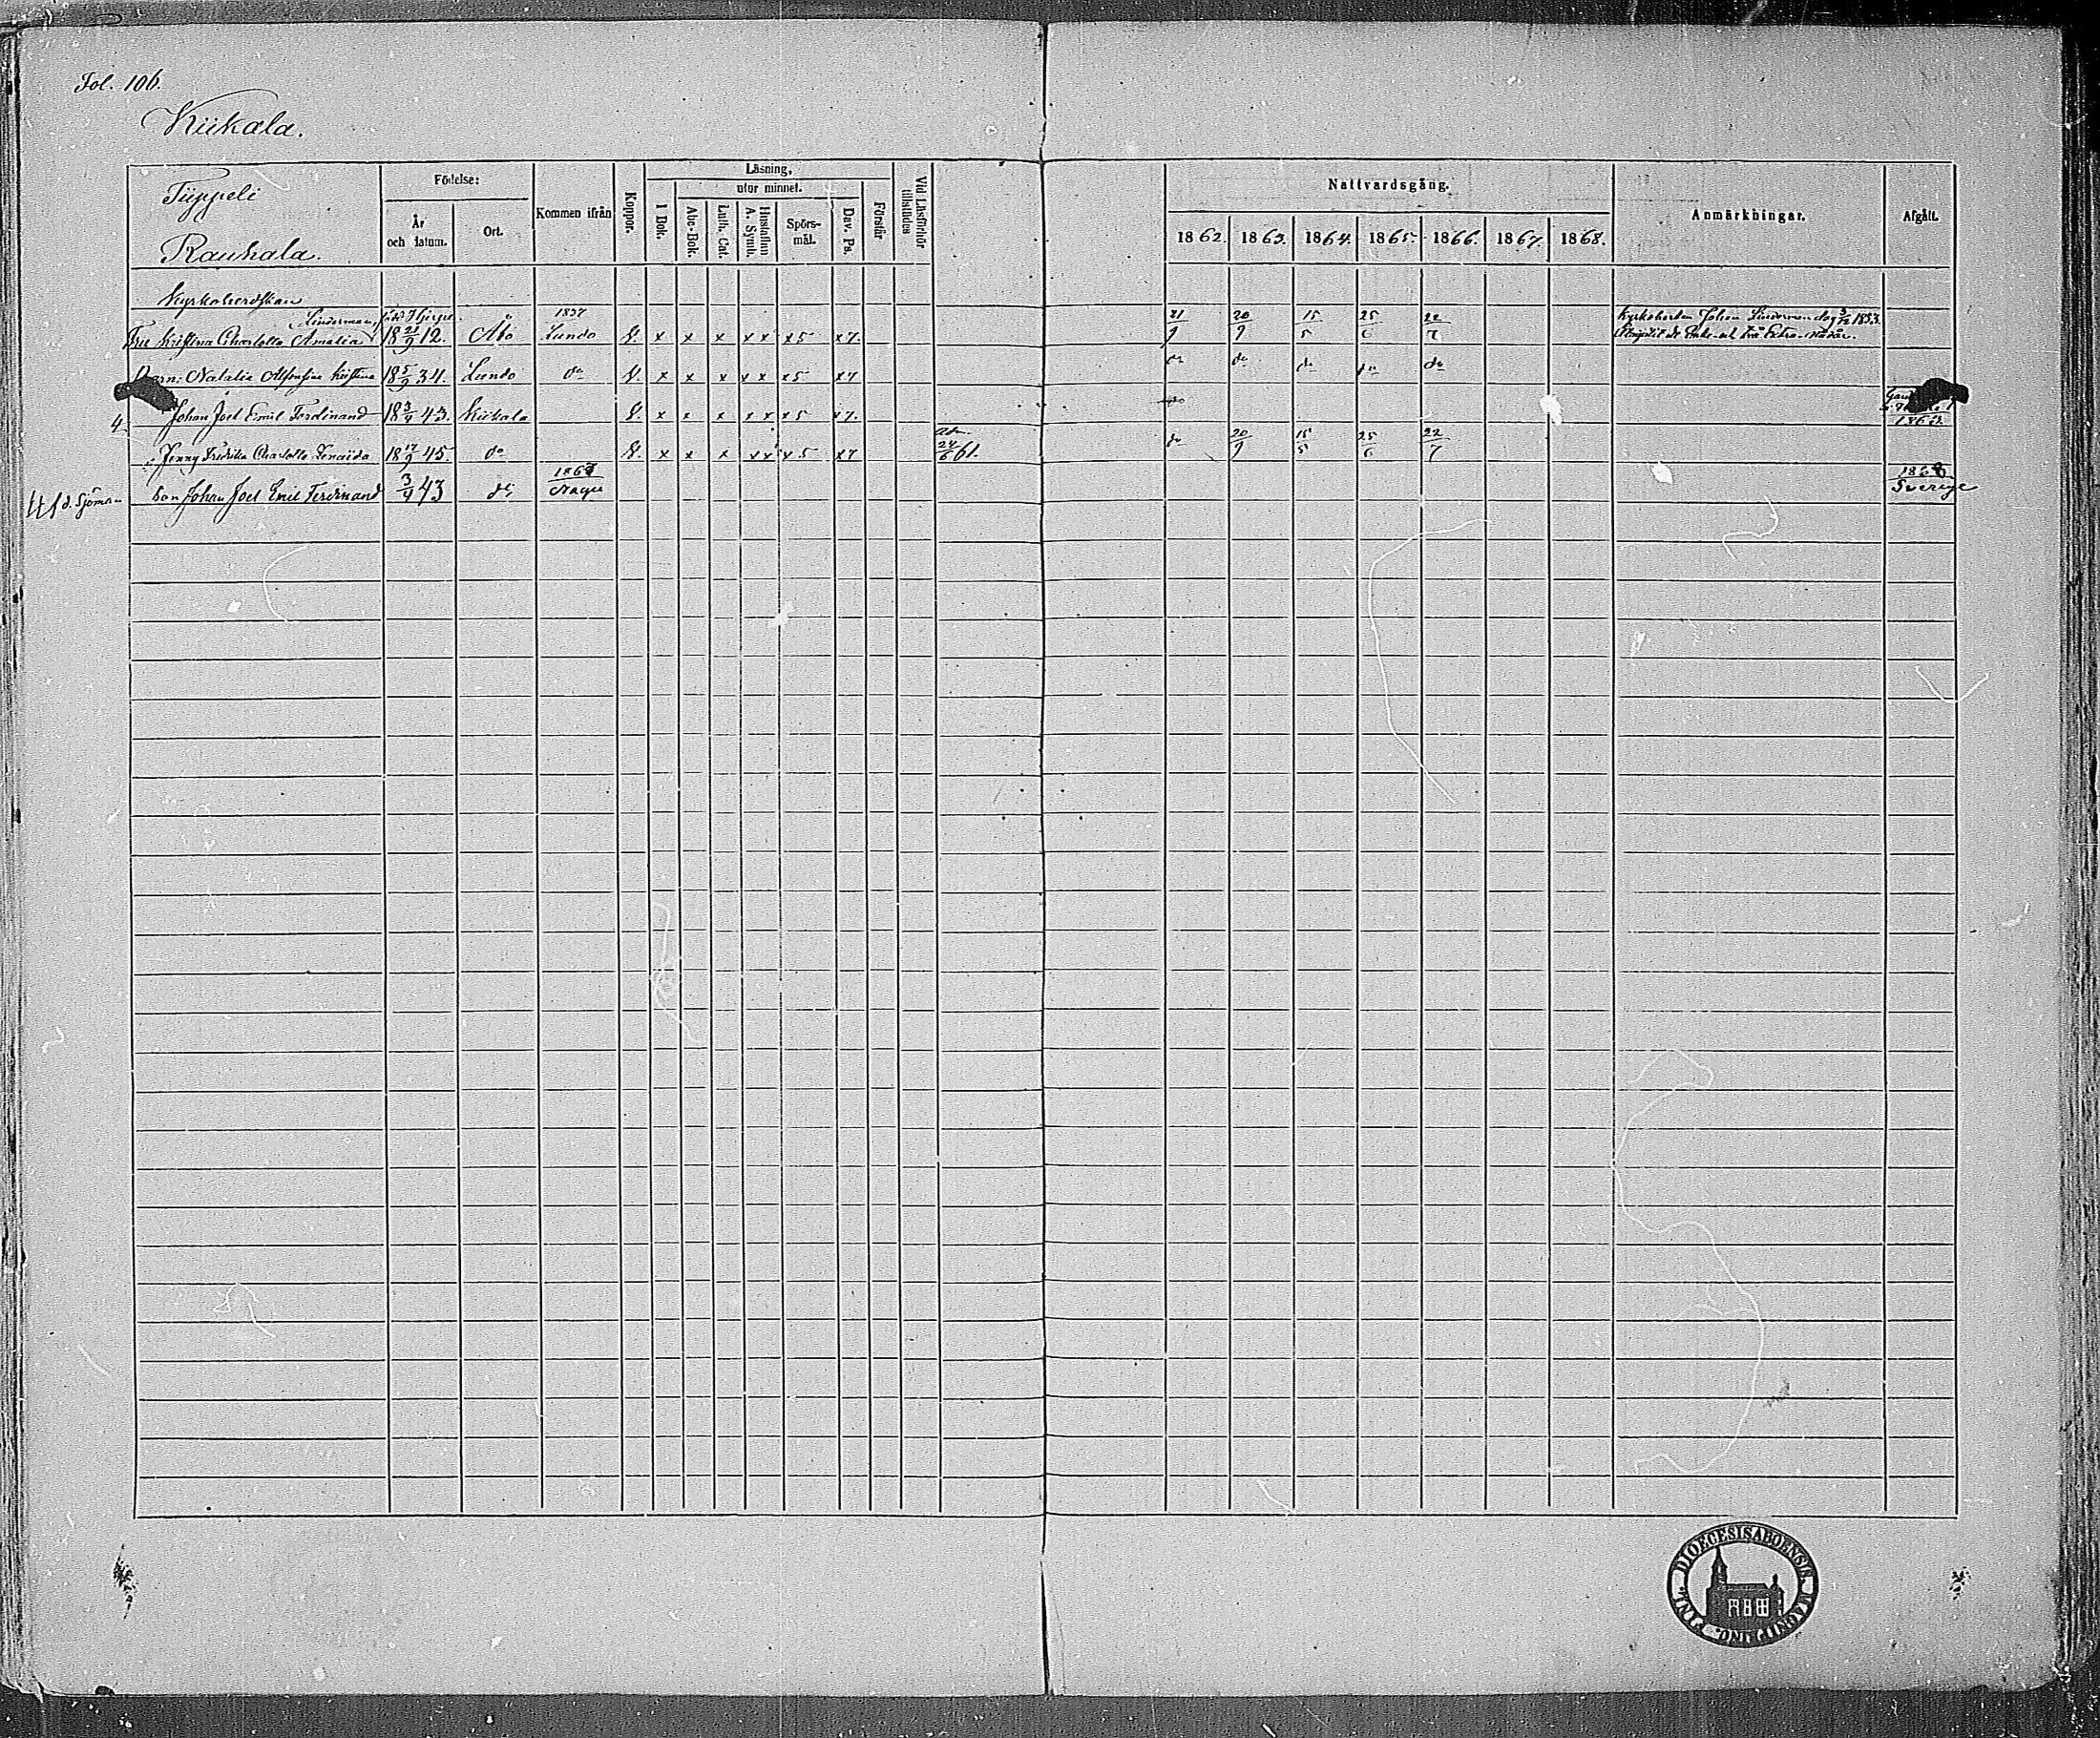 Fol. 106.
Kiikala.
Tiippeli
Raukala.
Födelse:
År och datum.
Ort.
Kommen ifrån
Koppor.
Läsning,
I Bok.
utur minnet.
Abc-Bok.
Luth. Cat.
Hustaflan A. Symb.
Spörs-mål.
Dav. Ps.
Förstår
Vid Läsförhör tillstädes
Nattvardsgång.
1862. 1863. 1864. 1865. 1866. 1867. 1868.
Anmärkningar.
Afgått.
Kyrkoherdskan
Linderman, född 1837
Fru Kristina Charlotta Amalia 18 21/9 12. Åbo Lundo x x x x x x 5 x 7. 21/9 20/9 15/5 25/6 22/7 Kyrkoherden Johan Linderman dog 1853.
Barn: Natalia Alfonsina Kristina 18 5/9 34. Lundo do x x x x x x 5 x 7 do do do do do
4. Johan Joel Emil Ferdinand 18 3/4 43. Kiikala x x x x x x 5 x 7. do 1863
Adm.
Jenny Fredrika Charlotta Zenaida 18 17/9 45. do x x x x x x 5 x 7 24/6 61. do 20/9 15/5 25/6 22/7
d. Sjöman Son Johan Joel Emil Ferdinand 3/4 43 do 1868 Sverige
DIOECESIS ABOENSIS. MAGNI DUC. FINL.